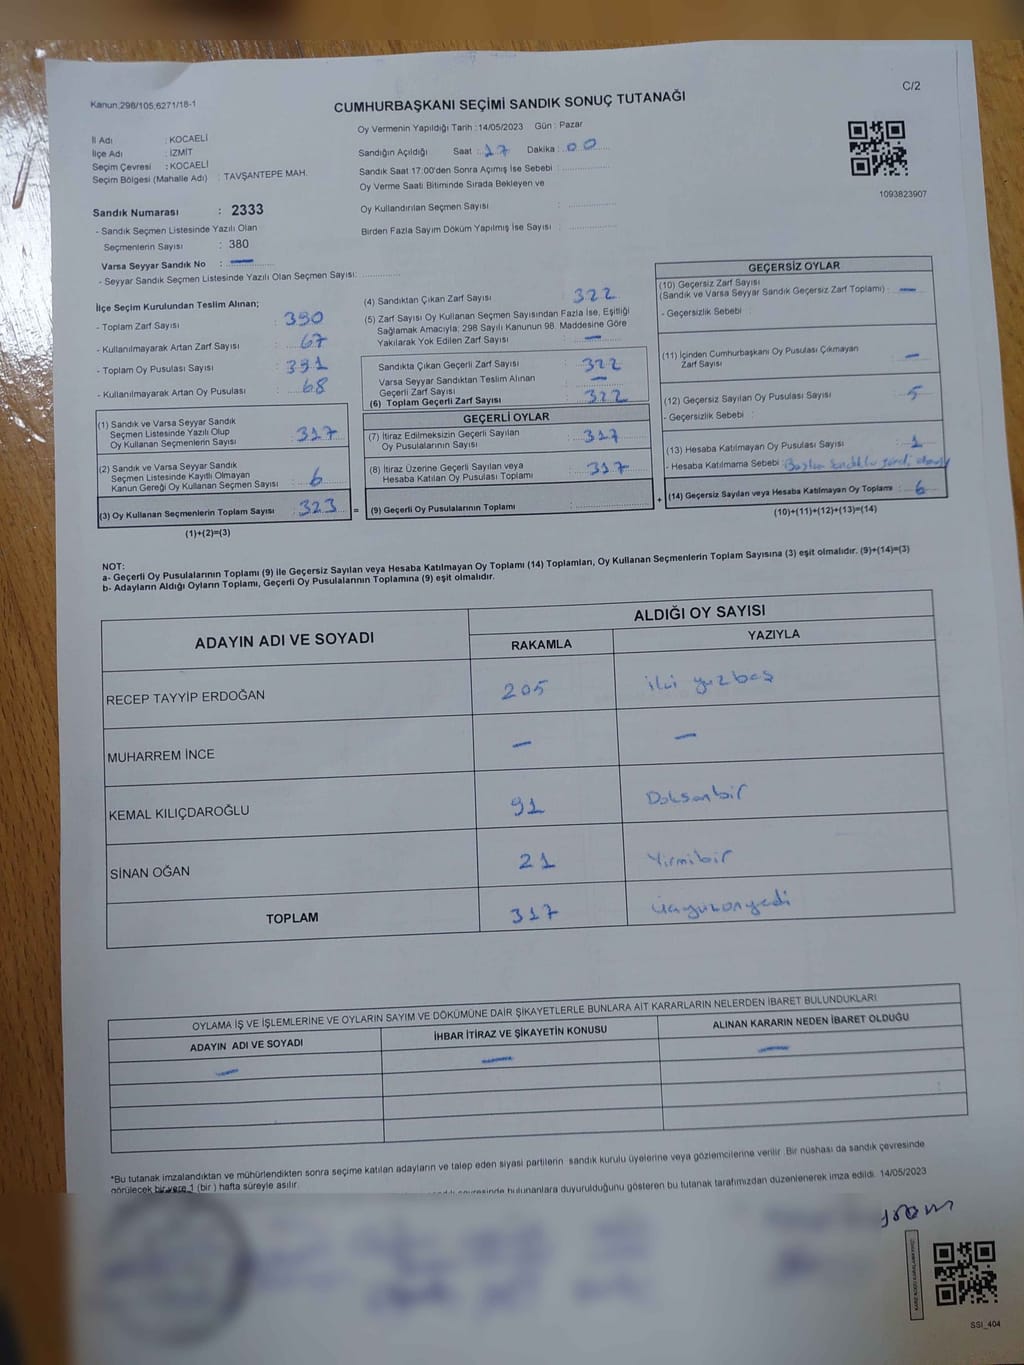 Kanun;298/105;6271/18-1
C/2
CUMHURBAŞKANI SEÇİMİ SANDIK SONUÇ TUTANAĞI
İl Adı : KOCAELİ
İlçe Adı : İZMİT
Seçim Çevresi : KOCAELİ
Seçim Bölgesi (Mahalle Adı) : TAVŞANTEPE MAH.
Oy Vermenin Yapıldığı Tarih : 14/05/2023 Gün : Pazar
Sandığın Açıldığı Saat : 17 Dakika : 00
Sandık Saat 17.00'den Sonra Açımış İse Sebebi :
Oy Verme Saati Bitiminde Sırada Bekleyen ve
Oy Kullandırılan Seçmen Sayısı :
Birden Fazla Sayım Döküm Yapılmış İse Sayısı :
1093823907
Sandık Numarası : 2333
- Sandık Seçmen Listesinde Yazılı Olan
Seçmenlerin Sayısı : 380
Varsa Seyyar Sandık No : —
- Seyyar Sandık Seçmen Listesinde Yazılı Olan Seçmen Sayısı:
İlçe Seçim Kurulundan Teslim Alınan;
- Toplam Zarf Sayısı : 390
- Kullanılmayarak Artan Zarf Sayısı : 67
- Toplam Oy Pusulası Sayısı : 391
- Kullanılmayarak Artan Oy Pusulası : 68
(1) Sandık ve Varsa Seyyar Sandık
Seçmen Listesinde Yazılı Olup
Oy Kullanan Seçmenlerin Sayısı : 317
(2) Sandık ve Varsa Seyyar Sandık
Seçmen Listesinde Kayıtlı Olmayan
Kanun Gereği Oy Kullanan Seçmen Sayısı : 6
(3) Oy Kullanan Seçmenlerin Toplam Sayısı : 323
(1)+(2)=(3)
(4) Sandıktan Çıkan Zarf Sayısı : 322
(5) Zarf Sayısı Oy Kullanan Seçmen Sayısından Fazla İse, Eşitliği
Sağlamak Amacıyla; 298 Sayılı Kanunun 98. Maddesine Göre
Yakılarak Yok Edilen Zarf Sayısı : —
Sandıkta Çıkan Geçerli Zarf Sayısı : 322
Varsa Seyyar Sandıktan Teslim Alınan
Geçerli Zarf Sayısı : —
(6) Toplam Geçerli Zarf Sayısı : 322
GEÇERLİ OYLAR
(7) İtiraz Edilmeksizin Geçerli Sayılan
Oy Pusulalarının Sayısı : 317
(8) İtiraz Üzerine Geçerli Sayılan veya
Hesaba Katılan Oy Pusulası Toplamı : 317
= (9) Geçerli Oy Pusulalarının Toplamı :
+
GEÇERSİZ OYLAR
(10) Geçersiz Zarf Sayısı
(Sandık ve Varsa Seyyar Sandık Geçersiz Zarf Toplamı) : —
- Geçersizlik Sebebi :
(11) İçinden Cumhurbaşkanı Oy Pusulası Çıkmayan
Zarf Sayısı : —
(12) Geçersiz Sayılan Oy Pusulası Sayısı : 5
- Geçersizlik Sebebi :
(13) Hesaba Katılmayan Oy Pusulası Sayısı : 1
- Hesaba Katılmama Sebebi :
(14) Geçersiz Sayılan veya Hesaba Katılmayan Oy Toplamı : 6
(10)+(11)+(12)+(13)=(14)
NOT:
a- Geçerli Oy Pusulalarının Toplamı (9) ile Geçersiz Sayılan veya Hesaba Katılmayan Oy Toplamı (14) Toplamları, Oy Kullanan Seçmenlerin Toplam Sayısına (3) eşit olmalıdır. (9)+(14)=(3)
b- Adayların Aldığı Oyların Toplamı, Geçerli Oy Pusulalarının Toplamına (9) eşit olmalıdır.
ADAYIN ADI VE SOYADI
ALDIĞI OY SAYISI
RAKAMLA YAZIYLA
RECEP TAYYİP ERDOĞAN 205 iki yüzbeş
MUHARREM İNCE — —
KEMAL KILIÇDAROĞLU 91 Doksanbir
SİNAN OĞAN 21 Yirmibir
TOPLAM 317 üçyüzonyedi
OYLAMA İŞ VE İŞLEMLERİNE VE OYLARIN SAYIM VE DÖKÜMÜNE DAİR ŞİKAYETLERLE BUNLARA AİT KARARLARIN NELERDEN İBARET BULUNDUKLARI
ADAYIN ADI VE SOYADI İHBAR İTİRAZ VE ŞİKAYETİN KONUSU ALINAN KARARIN NEDEN İBARET OLDUĞU
— — —
*Bu tutanak imzalandıktan ve mühürlendikten sonra seçime katılan adayların ve talep eden siyasi partilerin sandık kurulu üyelerine veya gözlemcilerine verilir. Bir nüshası da sandık çevresinde
görülecek bir yere 1 (bir) hafta süreyle asılır.
bulunanlara duyurulduğunu gösteren bu tutanak tarafımızdan düzenlenerek imza edildi. 14/05/2023
SSI_404